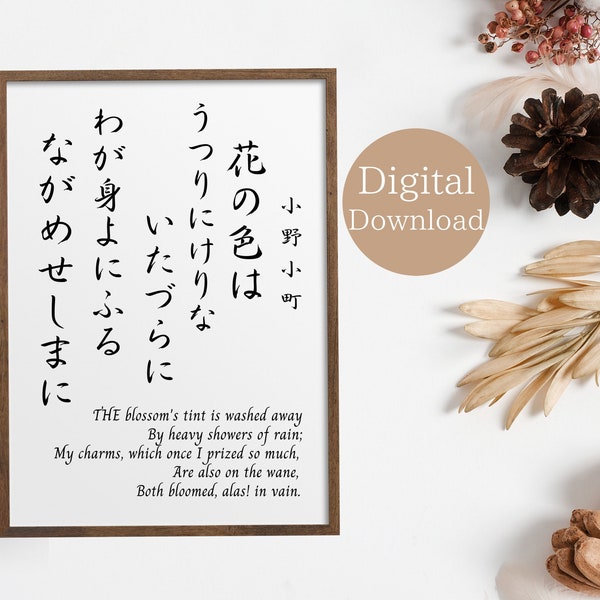 小野小町
花の色は
うつりにけりな
いたづらに
わが身よにふる
ながめせしまに
THE blossom's tint is washed away
By heavy showers of rain;
My charms, which once I prized so much,
Are also on the wane,
Both bloomed, alas! in vain.
Digital
Download